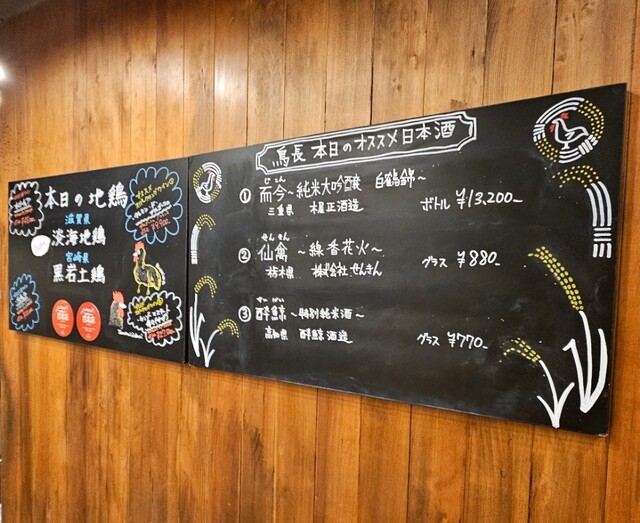 本日の地鶏
滋賀県
淡海地鶏
宮崎県
黒岩土鶏
鳥長 本日のオススメ日本酒
① 而今~純米大吟醸 白鶴錦~
じこん
三重県 木屋正酒造
ボトル ¥13,200-
せんきん
② 仙禽 ~線香花火~
栃木県 株式会社せんきん
グラス ¥880-
すいげい
③ 酔鯨 ~特別純米酒~
高知県 酔鯨酒造
グラス ¥770-